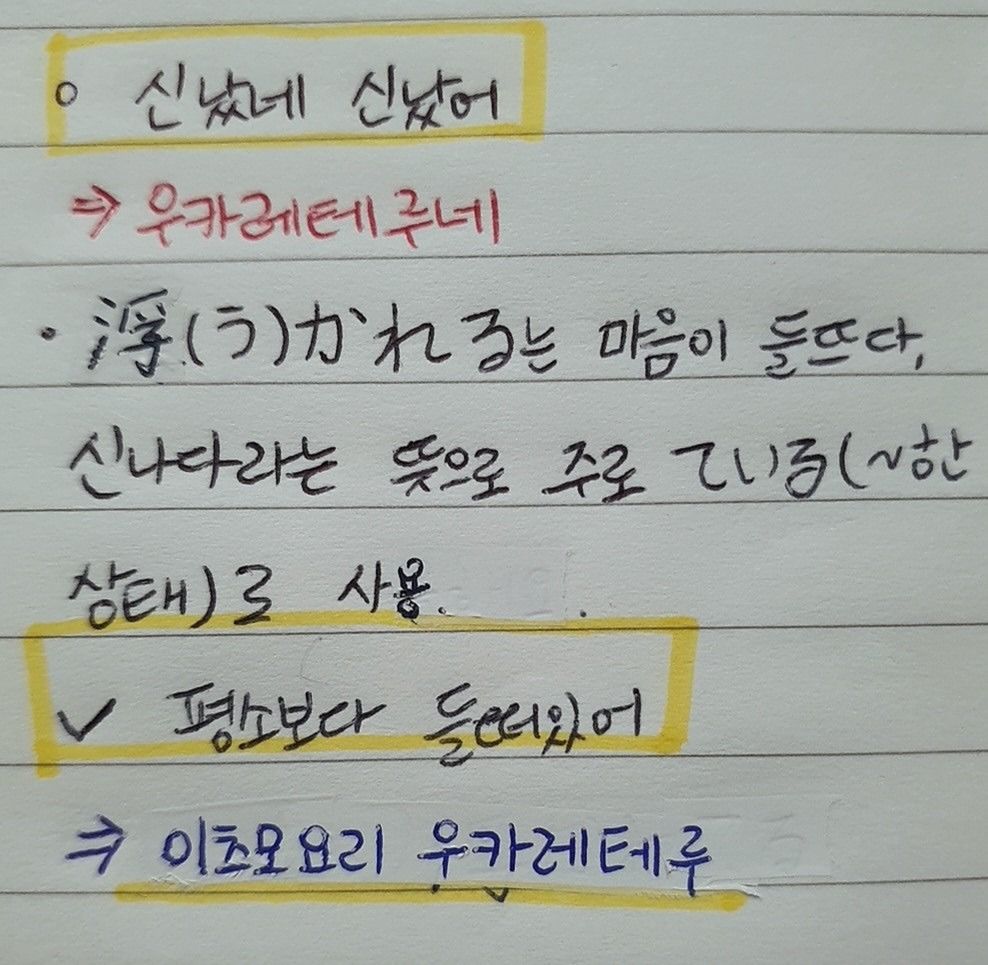 ○ 신났네 신났어
⇒ 우카레테루네
· 浮(う)かれる는 마음이 들뜨다,
신나다라는 뜻으로 주로 ている(~한
상태)로 사용.
✓ 평소보다 들떠있어
⇒ 이츠모요리 우카레테루